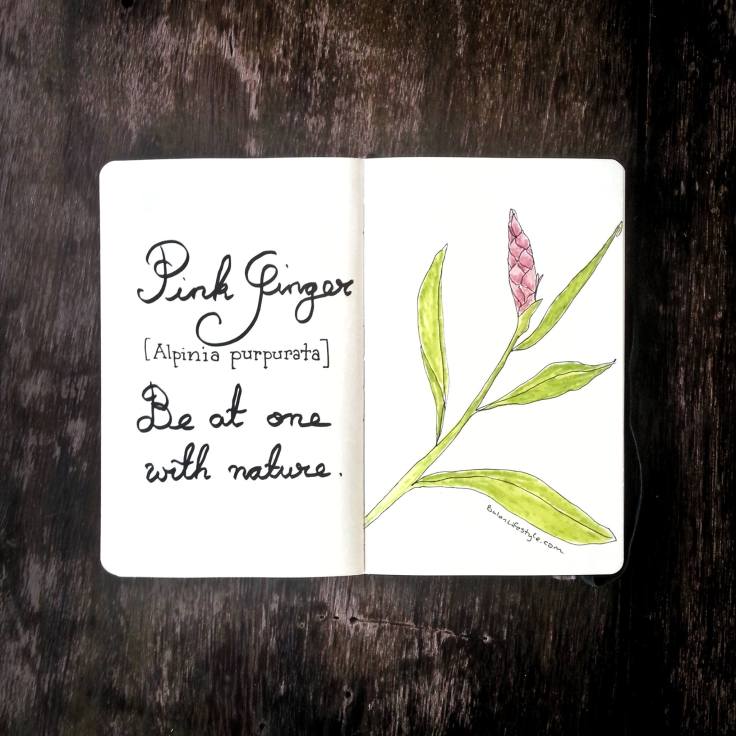 Pink Ginger
[Alpinia purpurata]
Be at one
with nature.
BulanLifestyle.com